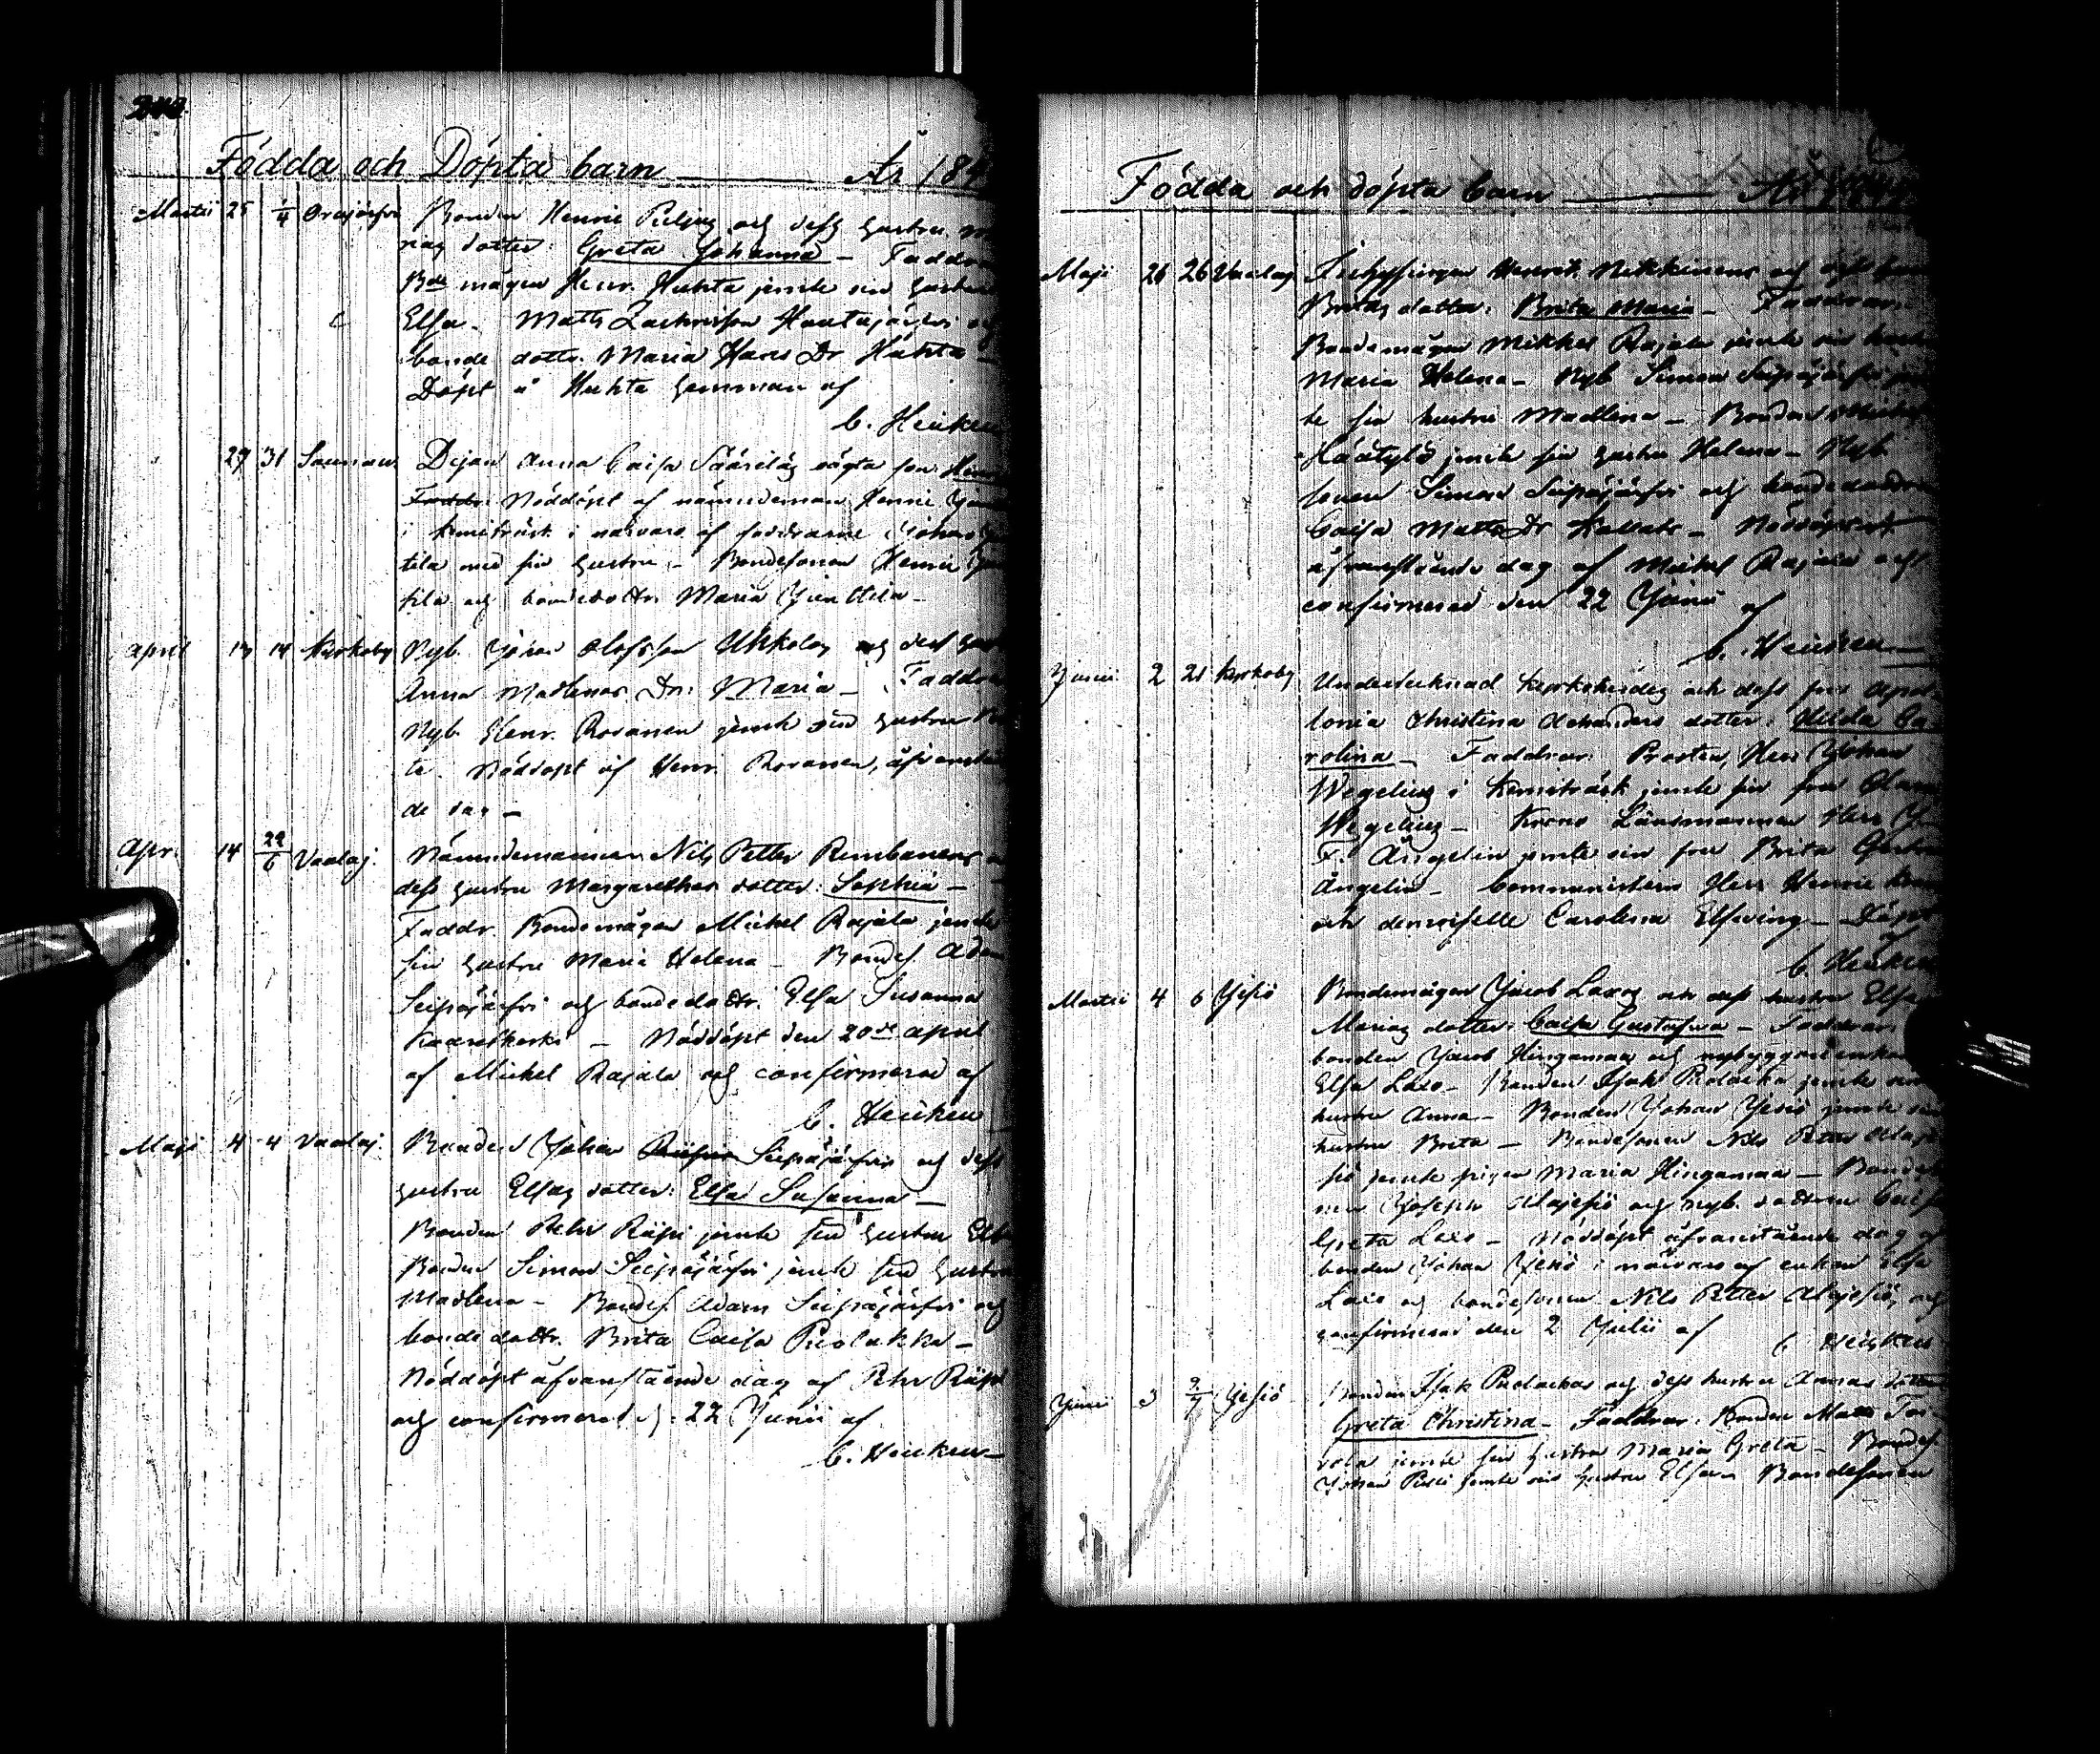 Födda och Döpta barn — År 184
Martii 25 1/4 Orajärfvi Bonden Henric Puljus och dess hustru
rias dotter: Greta Johanna — Faddrar
Bde mågen Henr. Huhta jemte sin hustru
Elsa. Matts Zachrisson Hautajärfvi och
bonde dottr. Maria Hans Dr Huhta —
Döpt å Huhta hemman af
C. Heiken
29 31 Saunav. Pigan Anna Caisa Sääriläs oägta son: Henr
Faddr. Nöddöpt af nämndeman Henric
i Kemiträsk i närvaro af faddrarne Johan
tila med sin hustru — Bondesonen Henric
tila och bondedottr. Maria Junttila —
April 13 14 Kyrkoby Nyb. Johan Olofsson Ukkolas och dess hus
Anna Madlenas Dr: Maria — Faddrar
Nyb. Henr. Rovanen jemte sin hustru
ta. Nöddöpt af Henr. Roranen, åfvanståen
de dag —
Apr. 14 22/6 Vaalaj. Nämndemannen Nils Petter Rimbanens
dess hustru Margarethas dotter: Sophia —
Faddr. Bondemågen Michel Rajala jemte
sin hustru Maria Helena — Bondes. Adam
Seipäjärfvi och bondedottr. Elsa Susanna
Kaaretkoski — Nöddöpt den 20de April
af Michel Rajala och confirmerad af
C. Heiken
Maji 4 4 Vaalaj. Bonden Johan Seipäjärfvis och dess
hustru Elsas dotter: Elsa Susanna —
Bonden Pehr Riipi jemte sin hustru Elsa
Bonden Simon Seipäjärfvi jemte sin hustru
Madlena — Bondes. Adam Seipäjärfvi och
bondedottr. Brita Caisa Puolakka —
Nöddöpt åfvanstående dag af Pehr Riipi
och confirmerad d. 22 Junii af
C. Heiken —
Födda och döpta barn — År
Maji 26 26 Vaalaj. Henrik Nikkinens och dess
Britas dotter: Brita Maria — Faddrar:
Bondemågen Mikkel Rajala jemte sin hustru
Maria Helena — Nyb. Simon Seipäjärfvi jem
te sin hustru Madlena — Bonden Michel
Häätylä jemte sin hustru Helena — Nyb.
sonen Simon Seipäjärfvi och bondedottren
Caisa Matts Dr Kallats — Nöddöpt
åfvanstående dag af Mickel Rajala och
confirmerad den 22 Junii af
C. Heiken —
Junii 2 21 Kyrkoby Undertecknad Kyrkoherdes och dess fru Apol-
lonia Christina dotter: Hilda Ca-
rolina — Faddrar: Prosten Herr Johan
Wegelius i Kemiträsk jemte sin fru
Wegelius — Krono Länsmannen Herr
F. Ångelin jemte sin fru Brita
Ångelin — Comministern Herr Henric
och demoiselle Carolina Elfving — Döpt
af
C. Heiken
Martii 4 6 Jesiö Bondemågen Jacob Laxos och dess hustru Elsa
Marias dotter: Caisa Gustafva — Faddrar:
bonden Jacob Hinganmaa och nybyggareenkan
Elsa Laxo — Bonden Isak Puolacka jemte sin
hustru Anna — Bonden Johan Jesiö jemte sin
hustru Brita — Bondesonen Nils Petter Alaje
siö jemte pigan Maria Hinganmaa — Bondeso
nen Joseph Alajesiö och nyb. dottren Caisa
Greta Laxo — Nöddöpt åfvanstående dag af
bonden Johan Jesiö i närvaro af enkan Elsa
Laxo och bondesonen Nils Petter Alajesiö, och
confirmerad den 2 Julii af C. Heiken
Junii 3 2/7 Jesiö Bonden Isak Puolackas och dess hustru Annas dotter
Greta Christina — Faddrar: Bonden Matts Tor-
vola jemte sin hustru Maria Greta — Bondes.
Johan jemte sin hustru Elsa — Bondesonen